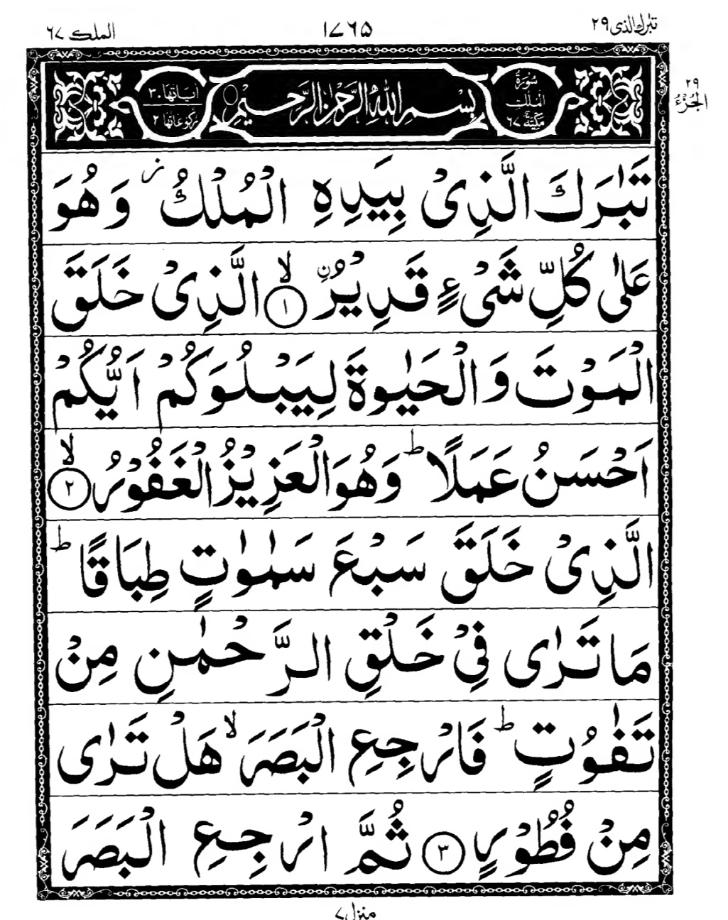 تبٰرك الذی ٢٩ ١٧٦٥ الملك ٦٧
٢٩
الجُزْءُ
سُوْرَةُ الْمُلْكِ مَكِّيَّةٌ ٦٧ بِسْمِ اللّٰهِ الرَّحْمٰنِ الرَّحِيْمِ اٰيَاتُهَا ٣٠ رُكُوْعَاتُهَا ٢
تَبٰرَكَ الَّذِیْ بِيَدِهِ الْمُلْكُ ز وَهُوَ
عَلٰى كُلِّ شَیْءٍ قَدِيْرُ ۨ ۙ ﴿١﴾ الَّذِیْ خَلَقَ
الْمَوْتَ وَالْحَيٰوةَ لِيَبْلُوَكُمْ اَيُّكُمْ
اَحْسَنُ عَمَلًا ؕ وَهُوَ الْعَزِيْزُ الْغَفُوْرُ ۙ ﴿٢﴾
الَّذِیْ خَلَقَ سَبْعَ سَمٰوٰتٍ طِبَاقًا ؕ
مَا تَرٰى فِیْ خَلْقِ الرَّحْمٰنِ مِنْ
تَفٰوُتٍ ؕ فَارْجِعِ الْبَصَرَ ۙ هَلْ تَرٰى
مِنْ فُطُوْرٍ ﴿٣﴾ ثُمَّ ارْجِعِ الْبَصَرَ
منزل ٧